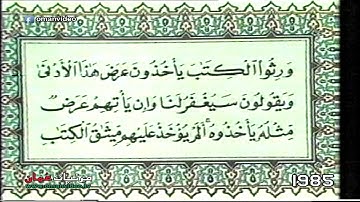 /omanvideo
وَرِثُوا۟ ٱلْكِتَٰبَ يَأْخُذُونَ عَرَضَ هَٰذَا ٱلْأَدْنَىٰ
وَيَقُولُونَ سَيُغْفَرُ لَنَا وَإِن يَأْتِهِمْ عَرَضٌ
مِّثْلُهُ يَأْخُذُوهُ أَلَمْ يُؤْخَذْ عَلَيْهِم مِّيثَٰقُ ٱلْكِتَٰبِ
1985
عمان
www.omanvideo.tv